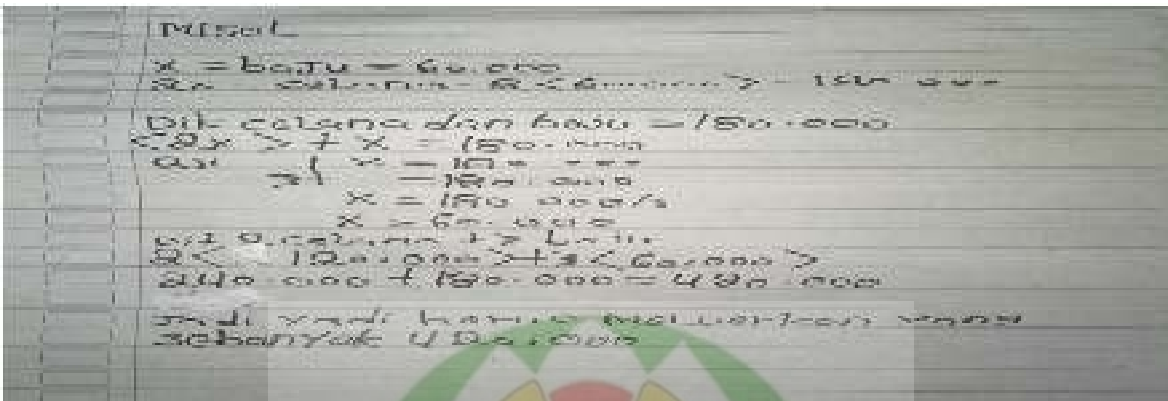 Misal
x = baju = 60.000
2x = celana = 2 < 60.000 > = 120.000
Dit celana dan baju = 180.000
< 2x > + x = 180.000
2x + x = 180.000
3x = 180.000
x = 180.000/3
x = 60.000
2 < 120.000 > + 3 < 60.000 >
240.000 + 180.000 = 420.000
Jadi yandi harus uang
sebanyak 420.000